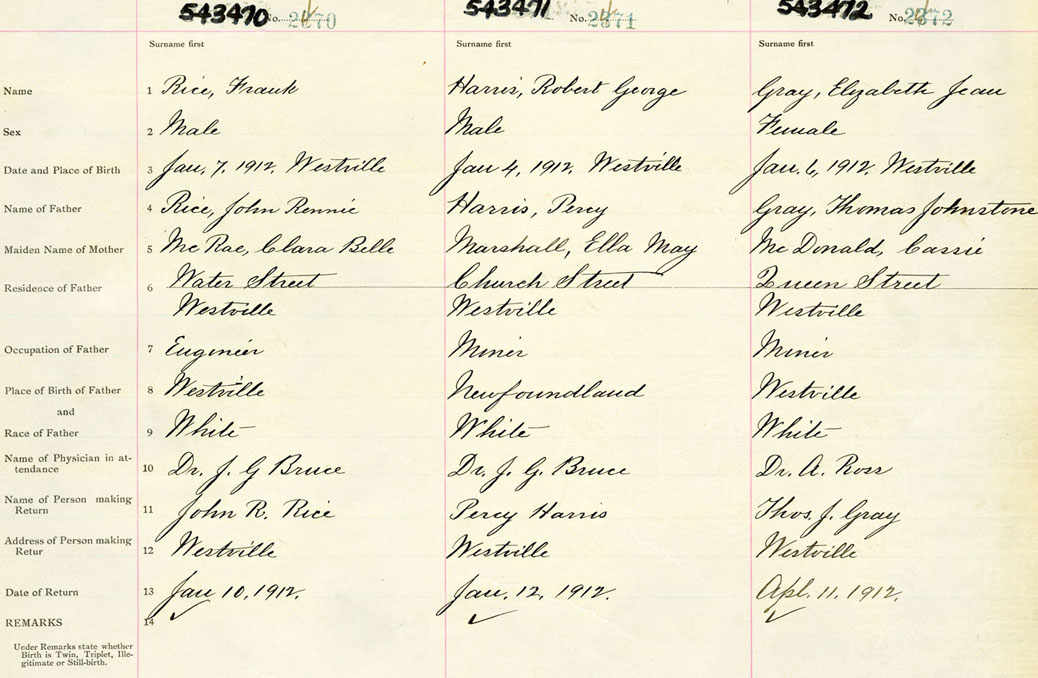 543470 No. 2370 543471 No. 2371 543472 No. 2372
Surname first Surname first Surname first
Name 1 Rice, Frank Harris, Robert George Gray, Elizabeth Jean
Sex 2 Male Male Female
Date and Place of Birth 3 Jan. 7, 1912, Westville Jan 4, 1912, Westville Jan. 6, 1912, Westville
Name of Father 4 Rice, John Rennie Harris, Percy Gray, Thomas Johnstone
Maiden Name of Mother 5 McRae, Clara Belle Marshall, Ella May McDonald, Cassie
Residence of Father 6 Water Street Church Street Queen Street
Westville Westville Westville
Occupation of Father 7 Engineer Miner Miner
Place of Birth of Father 8 Westville Newfoundland Westville
and
Race of Father 9 White White White
Name of Physician in at-
tendance 10 Dr. J. G Bruce Dr. J. G. Bruce Dr. A. Ross
Name of Person making
Return 11 John R. Rice Percy Harris Thos. J. Gray
Address of Person making
Retur 12 Westville Westville Westville
Date of Return 13 Jan 10, 1912. Jan. 12, 1912. Apl. 11, 1912.
REMARKS 14
Under Remarks state whether
Birth is Twin, Triplet, Ille-
gitimate or Still-birth.